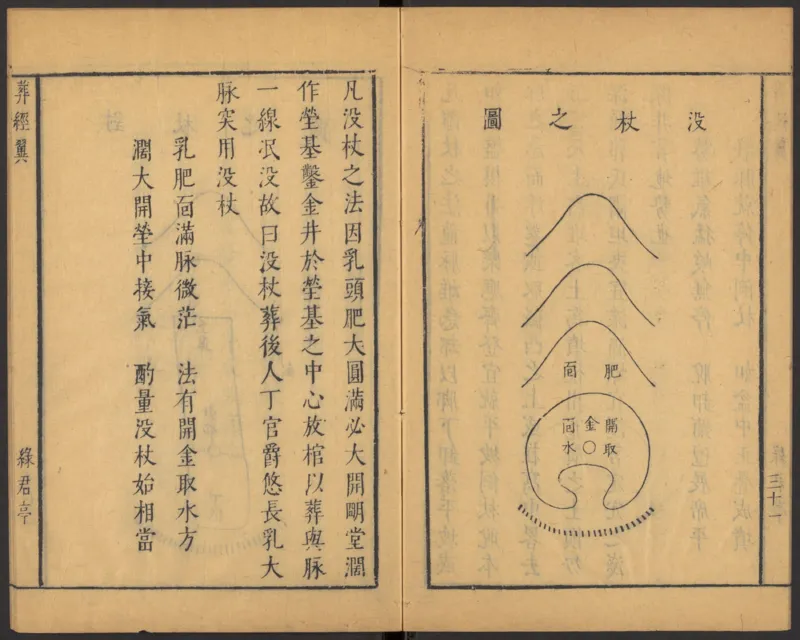 没杖之圖
肥靣
開金靣
取〇水
三十一
凡没杖之法因乳頭肥大圓滿必大開眀堂濶
作塋基鑿金井於塋基之中心放棺以葬與脉
一線沉没故曰没杖葬後人丁官爵悠長乳大
脉突用没杖
乳肥靣滿脉微茫　法有開金取水方
濶大開塋中接氣　酌量没杖始相當
葬經翼
綠君亭